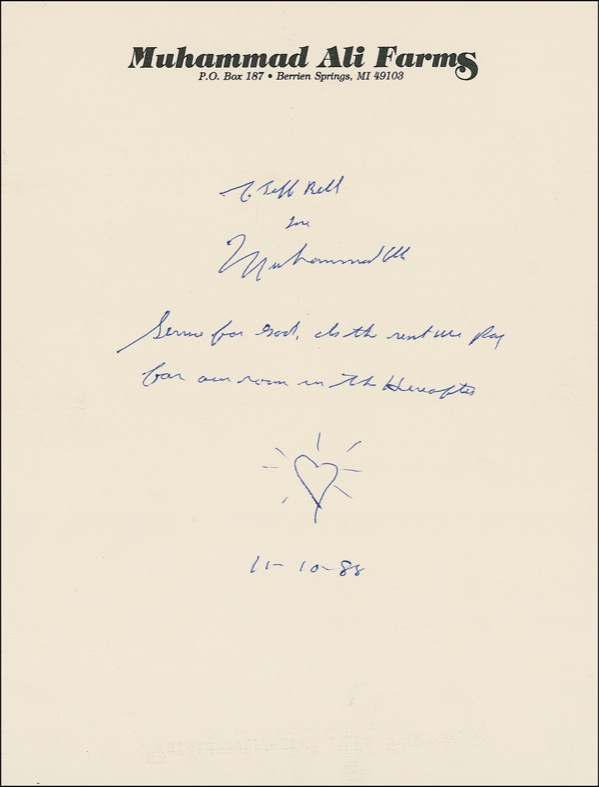 Muhammad Ali Farms
P.O. Box 187 • Berrien Springs, MI 49103
To Jeff Bell
Love
Muhammad Ali
Service for God, is the rent we pay
for our room in the Hereafter
11-10-88